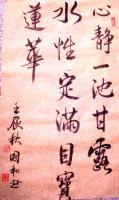 心静一池甘露
水性定满目寶
蓮華
壬辰秋国和书